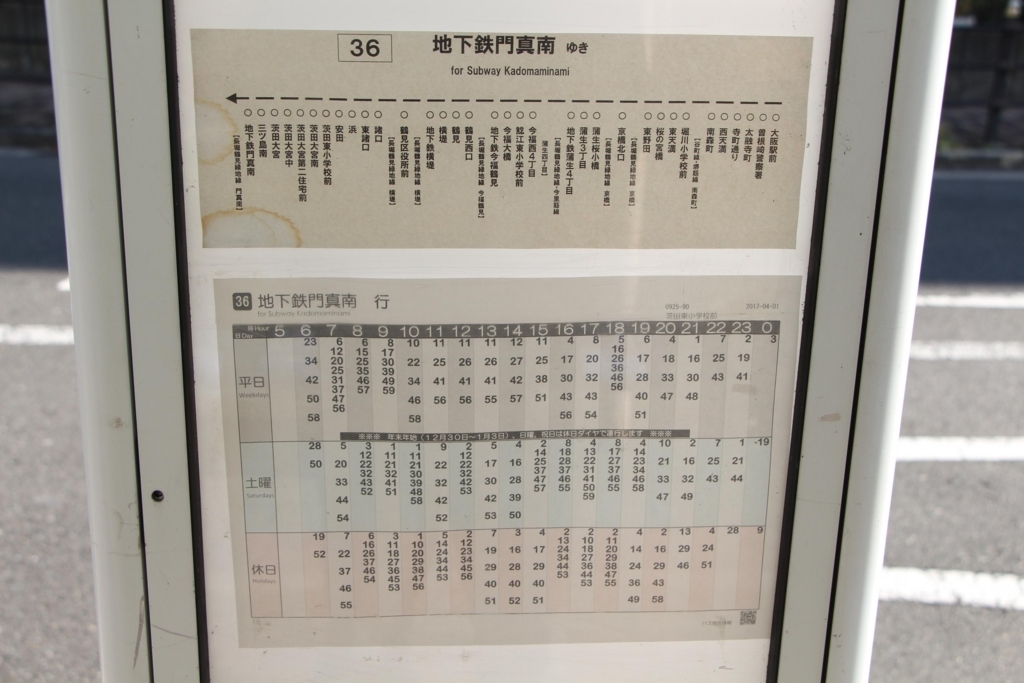 36 地下鉄門真南 ゆき
for Subway Kadomaminami
大阪駅前
曽根崎警察署
太融寺町
寺町通り
西天満
南森町
【谷町線・堺筋線 南森町】
堀川小学校前
東天満
桜の宮橋
東野田
【長堀鶴見緑地線 京橋】
京橋北口
【長堀鶴見緑地線 京橋】
蒲生桜小橋
蒲生3丁目
地下鉄蒲生4丁目
【長堀鶴見緑地線・今里筋線
蒲生四丁目】
今福西4丁目
鯰江東小学校前
今福大橋
地下鉄今福鶴見
【長堀鶴見緑地線 今福鶴見】
鶴見西口
鶴見
横堤
地下鉄横堤
【長堀鶴見緑地線 横堤】
鶴見区役所前
【長堀鶴見緑地線 横堤】
諸口
東諸口
浜
安田
茨田東小学校前
茨田大宮南
茨田大宮第二住宅前
茨田大宮中
茨田大宮
三ツ島南
地下鉄門真南
【長堀鶴見緑地線 門真南】
36 地下鉄門真南 行
for Subway Kadomaminami
0925-90 2017-04-01
茨田東小学校前
時Hour 5 6 7 8 9 10 11 12 13 14 15 16 17 18 19 20 21 22 23 0
日Day
平日
Weekdays
23 6 6 8 10 11 11 11 12 11 4 8 5 6 4 1 7 2 3
12 15 17 16
34 20 25 30 22 25 26 26 27 25 17 20 26 17 18 16 25 19
25 35 39 36
42 31 46 49 34 41 41 41 42 38 30 32 46 28 33 30 43 41
37 57 59 56
50 47 46 56 56 55 57 51 43 43 40 47 48
56
58 58 56 54 51
※※※ 年末年始(12月30日~1月3日)、日曜、祝日は休日ダイヤで運行します ※※※
土曜
Saturdays
28 5 3 1 1 9 2 5 4 2 8 4 8 4 10 2 7 1 -19
12 11 11 12 14 18 13 17 14
50 20 22 21 21 22 22 17 16 25 28 22 27 23 21 16 25 21
32 32 30 32 37 37 31 37 34
33 43 41 39 32 42 30 28 47 46 41 46 46 33 32 43 44
52 51 48 53 57 55 50 55 58
44 58 42 42 39 59 47 49
54 52 53 50
休日
Holidays
19 7 6 3 1 5 2 7 3 4 2 2 2 4 2 13 4 28 9
16 11 10 14 12 13 10 11
52 22 26 18 20 24 23 19 16 17 24 18 20 14 16 29 24
37 27 29 34 34 34 27 29
37 46 36 38 44 45 29 28 29 44 36 38 24 29 46 51
54 45 47 53 56 53 44 47
46 53 56 40 40 40 53 55 36 43
55 51 52 51 49 58